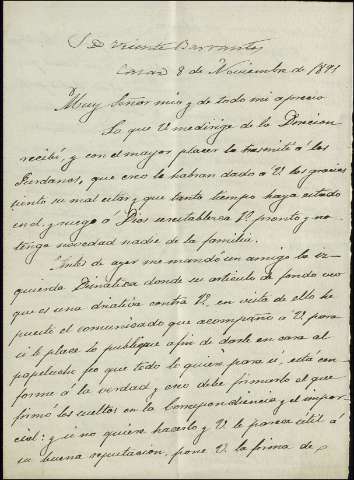 S D Vicente Barrantes
Casar 8 de Noviembre de 1891
Muy Señor mio y de todo mi aprecio
Lo que V me dirige de la Direcion
recibí, y con el mayor placer la trasmití a los
Jurdanos, que creo le habran dado á V. las gracias
siento su mal estar y que tanto tiempo haya estado
en el, y ruego a Dios se restablezca V. pronto y no
tenga novedad nadie de la familia.
Antes de ayer me mandó un amigo la iz-
quierda Dinastica donde su articulo de fondo creo
que es una diatriva contra V. en vista de ello he
puesto el comunicado que acompaño á V. para
si le place lo publique a fin de darle en cara al
papelucho ese que todo lo quiere para sí, está con-
forme á la verdad y creo debe firmarlo el que
firmó los sueltos en la Correspondencia y el impar-
cial; y si no quiere hacerlo y V. le parece útil á
su buena reputacion, pone V. la firma de